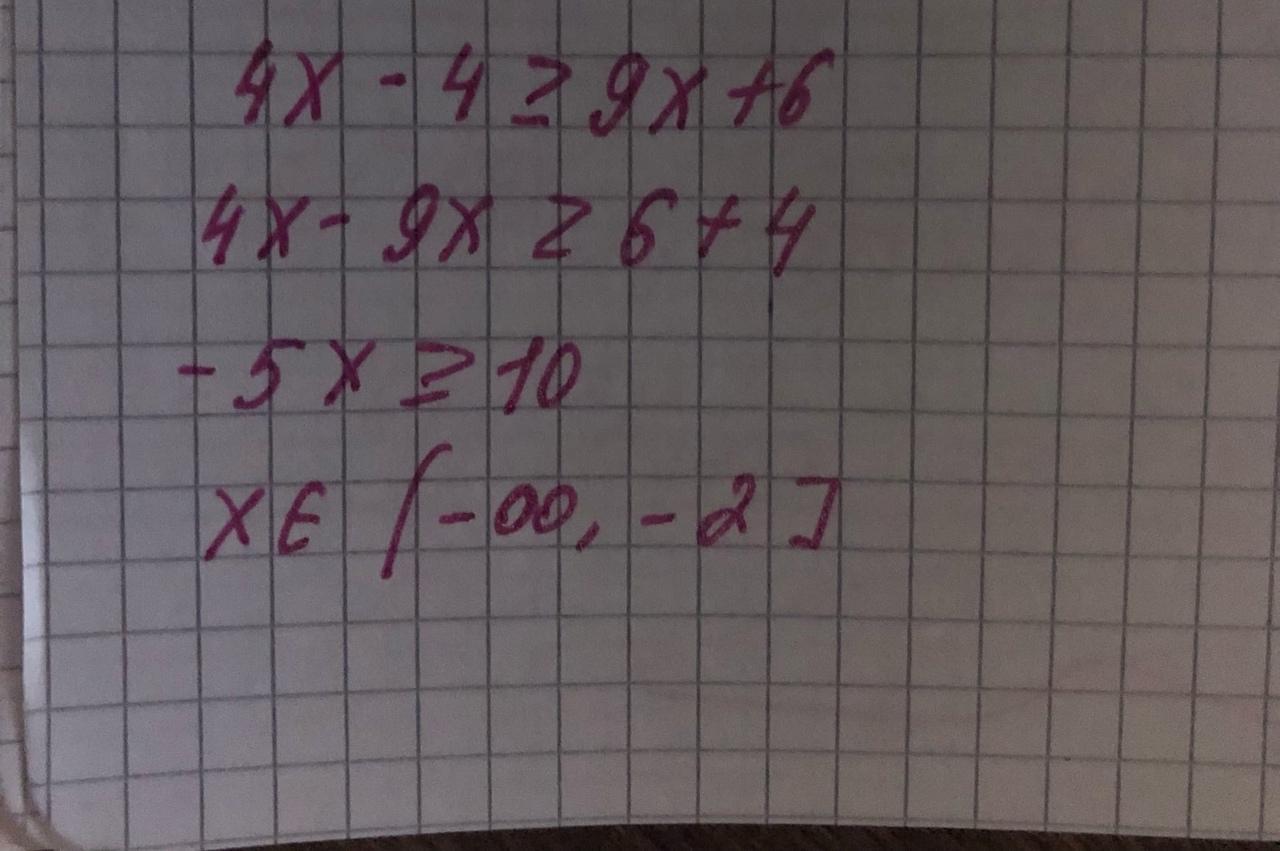 4x - 4 ≥ 9x + 6
4x - 9x ≥ 6 + 4
-5x ≥ 10
x ∈ (-∞, -2]